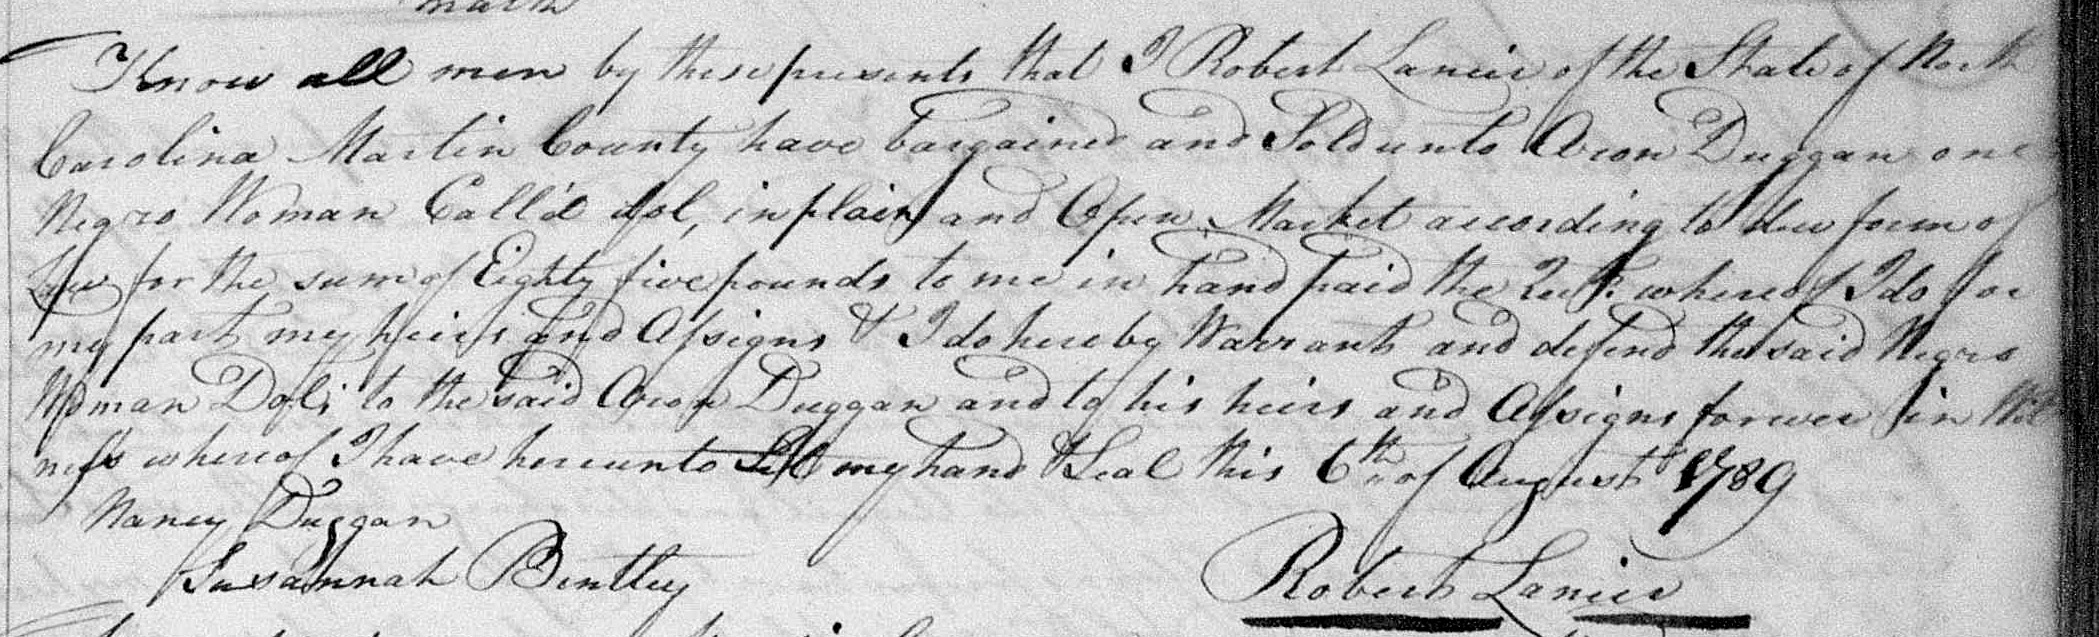 mark
Know all men by these presents that I Robert Lanier of the State of North
Carolina Martin County have bargained and Sold unto Aron Duggan one
Negro Woman Call'd dol, in plain and Open Market according to due form of
Law for the sum of Eighty five pounds to me in hand paid the whereof I do for
my part my heirs and Assigns & I do hereby Warrant and defend the said Negro
Woman Dol; to the said Aron Duggan and to his heirs and Assigns forever in Wit
ness whereof I have hereunto Set my hand & Seal this 6th of August 1789
Nancy Duggan
Susannah Bentley
Robert Lanier